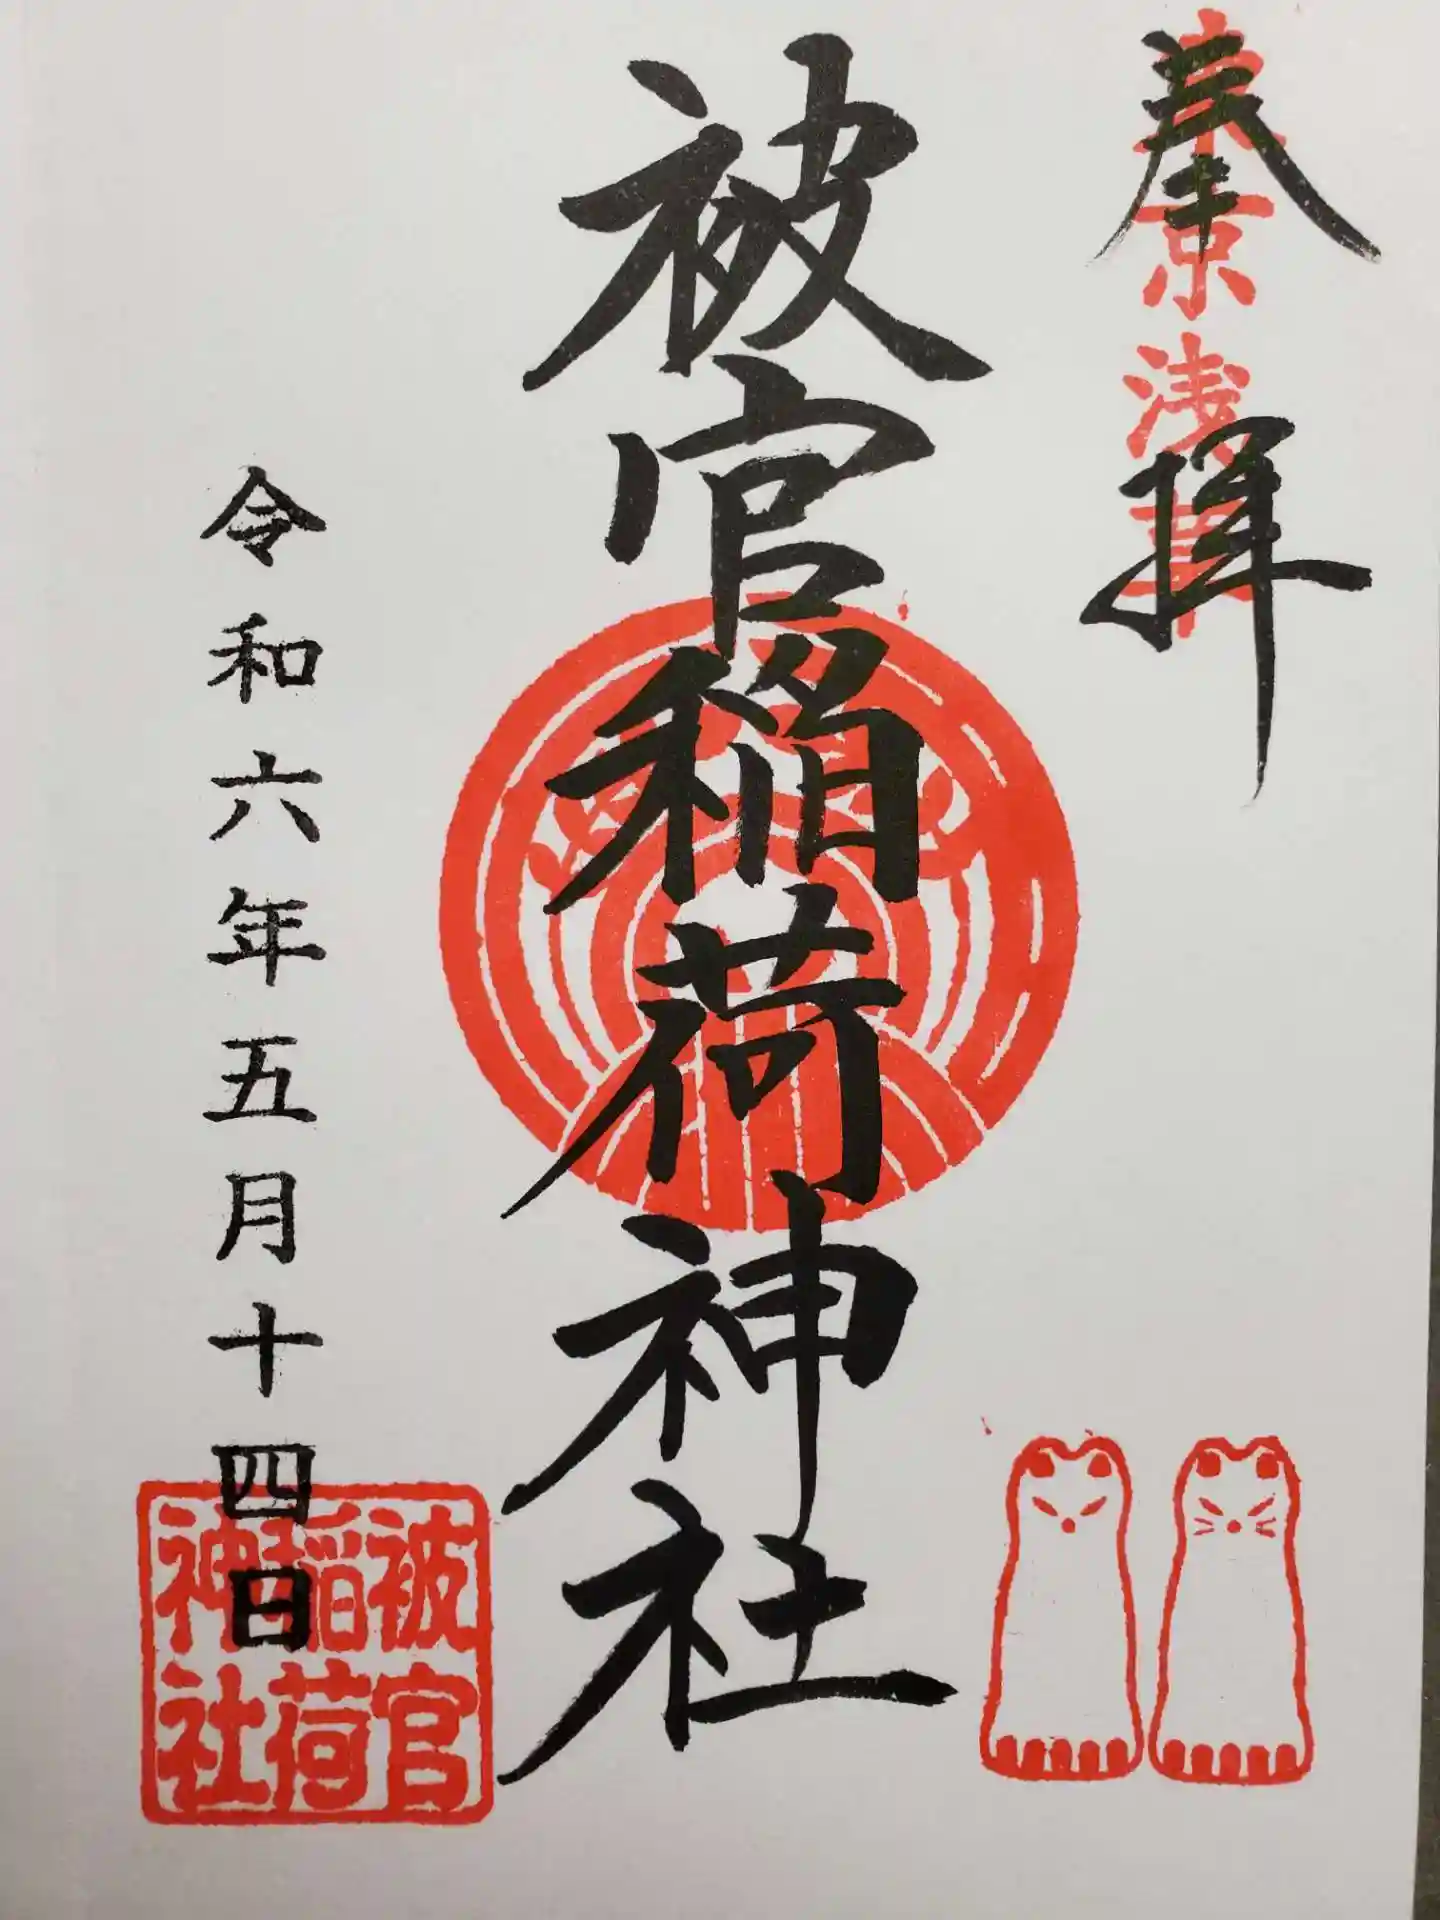 奉拝
東京浅草
被官稲荷神社
令和六年五月十四日
被官
稲荷
神社